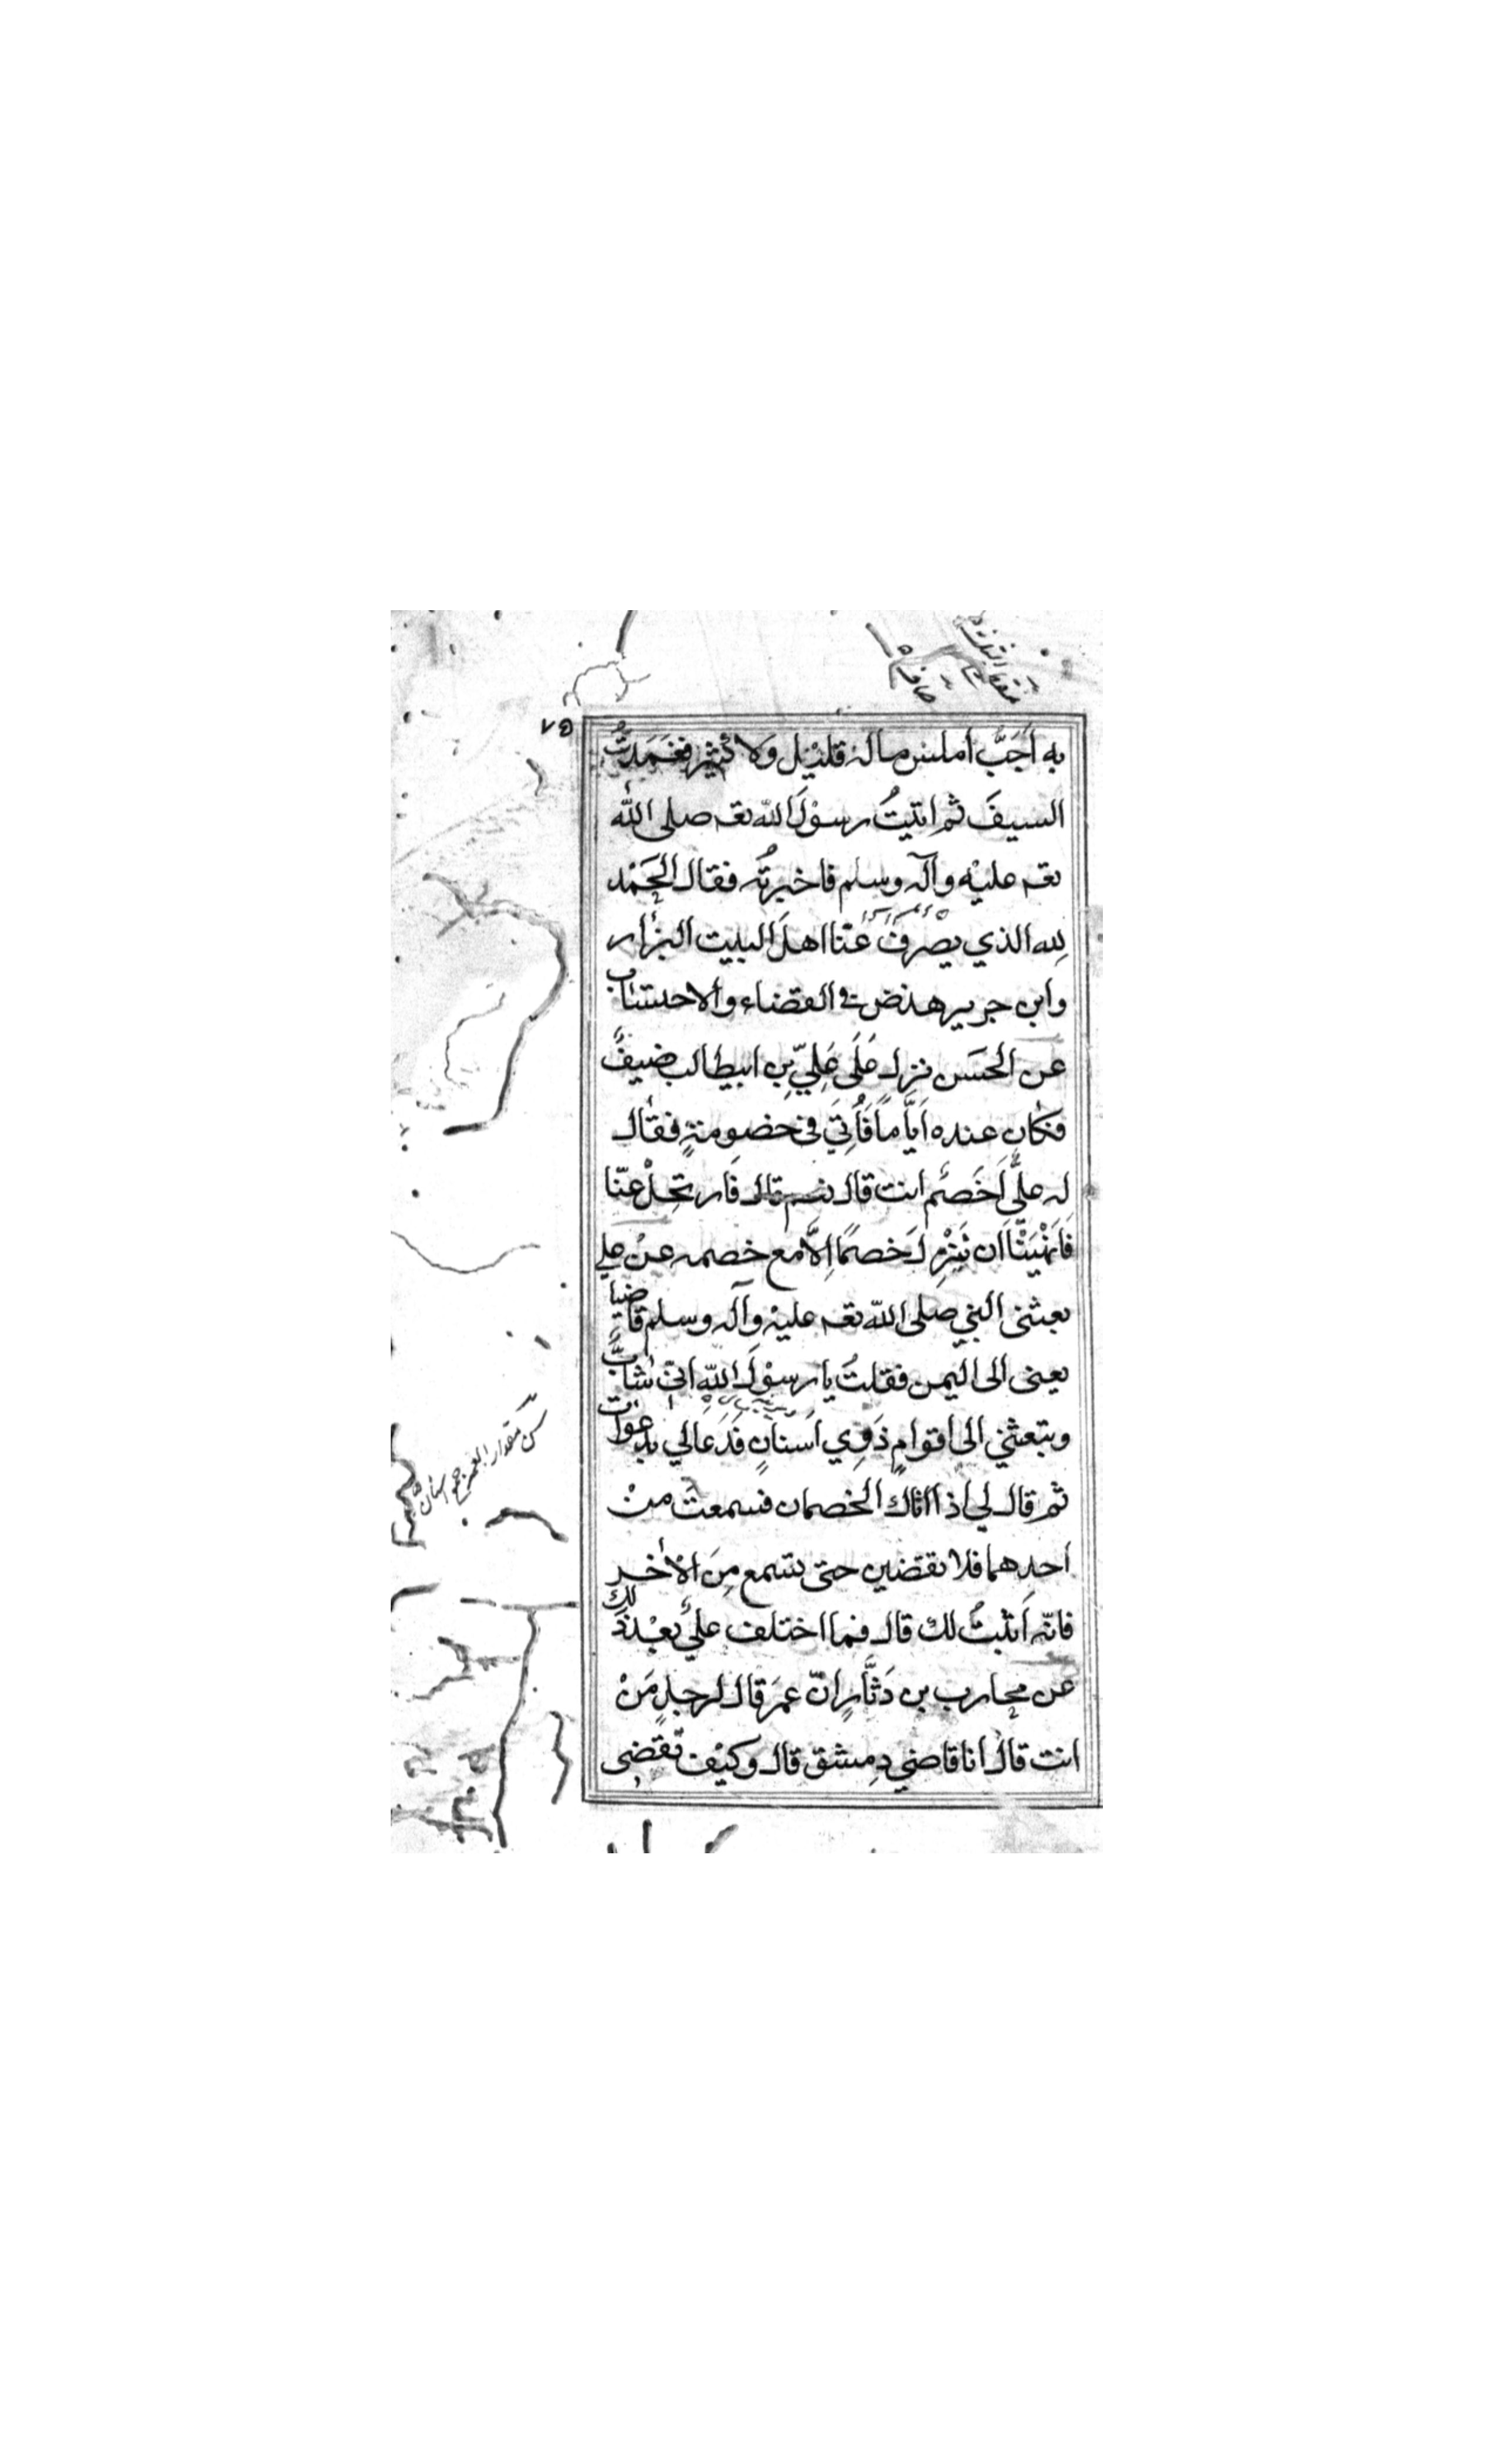 به اَجَبُّ املس ماله قليل ولا كثير فغَمَدتُّ
السيفَ ثم اتيتُ رسوْلَ الله تعه صلى الله
تعه عليْه وآله وسلم فاخبرتُه فقال الحَمْد
لله الذي يصرفُ عَنّا اهلَ البيت البزار
وابن جرير هذض في القضاء والاحتساب
عن الحَسَن نزل عَلَى عَلِيّ بِن ابيطالب ضيفٌ
فكان عنده اَيَّاماً فَاُتِيَ في خصومةٍ فقال
له عليٌّ اَخَصْم انت قال نعم قال فَارتحِلْ عنّا
فَاِنّا نُهِيْنَا اَن نُنْزِلَ خصمًا اِلاَّ مع خصمه عنْ علي
بعثنى النبي صلى الله تعه عليْه وآله وسلم قاضيا
يعنى الى اليمن فقلتُ يا رسوْلَ اللهِ انّى شابٌّ
وتبعثني الى اقوامٍ ذَوِي اَسنانٍ فَدَعَا لي بدعوات
ثم قال لي اذا اتاك الخصمان فسمعتَ منْ
احدهما فلا تقضين حتى تسمع مِنَ الآخر
فانّه اَثبتُ لك قال فما اختلف عليَّ بعْد ذَلك
عن محارب بن دَثَّارٍ انّ عمَرَ قال لرجلٍ مَنْ
انت قال انا قاضي دِمشق قال وكيْف تقضى
سن مقدار العمر جمع اسنان
٧٥